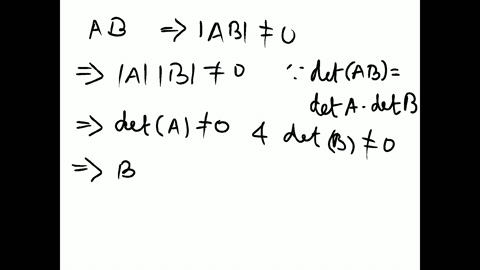 AB ⇒ |AB| ≠ 0
⇒ |A| |B| ≠ 0 ∵ det(AB) =
det A · det B
⇒ det(A) ≠ 0 & det(B) ≠ 0
⇒ B